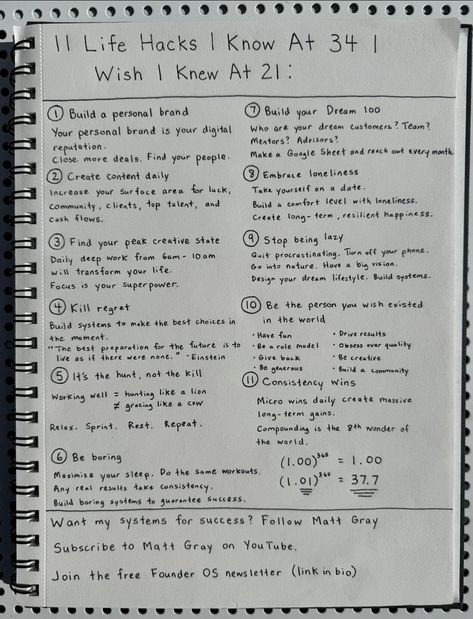 11 Life Hacks I Know At 34 I
Wish I Knew At 21:
① Build a personal brand
Your personal brand is your digital
reputation.
Close more deals. Find your people.
② Create content daily
Increase your surface area for luck,
community, clients, top talent, and
cash flows.
③ Find your peak creative state
Daily deep work from 6am-10am
will transform your life.
Focus is your superpower.
④ Kill regret
Build systems to make the best choices in
the moment.
"The best preparation for the future is to
live as if there were none." -Einstein
⑤ It's the hunt, not the kill
Working well = hunting like a lion
≠ grazing like a cow
Relax. Sprint. Rest. Repeat.
⑥ Be boring
Maximize your sleep. Do the same workouts.
Any real results take consistency.
Build boring systems to guarantee success.
⑦ Build your Dream 100
Who are your dream customers? Team?
Mentors? Advisors?
Make a Google Sheet and reach out every month.
⑧ Embrace loneliness
Take yourself on a date.
Build a comfort level with loneliness.
Create long-term, resilient happiness.
⑨ Stop being lazy
Quit procrastinating. Turn off your phone.
Go into nature. Have a big vision.
Design your dream lifestyle. Build systems.
⑩ Be the person you wish existed
in the world
• Have fun
• Be a role model
• Give back
• Be generous
• Drive results
• Obsess over quality
• Be creative
• Build a community
⑪ Consistency wins
Micro wins daily create massive
long-term gains.
Compounding is the 8th wonder of
the world.
(1.00)³⁶⁵ = 1.00
(1.01)³⁶⁵ = 37.7
Want my systems for success? Follow Matt Gray
Subscribe to Matt Gray on YouTube.
Join the free Founder OS newsletter (link in bio)